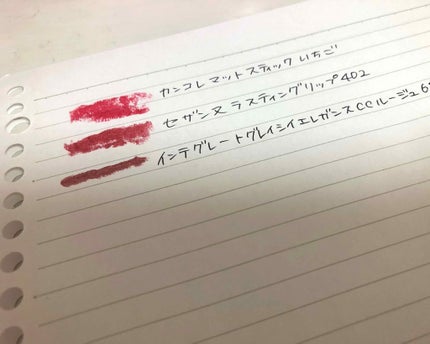 カンコレ マットスティック いちご
セザンヌ ラスティングリップ402
インテグレートグレイシィエレガンスCCルージュ6